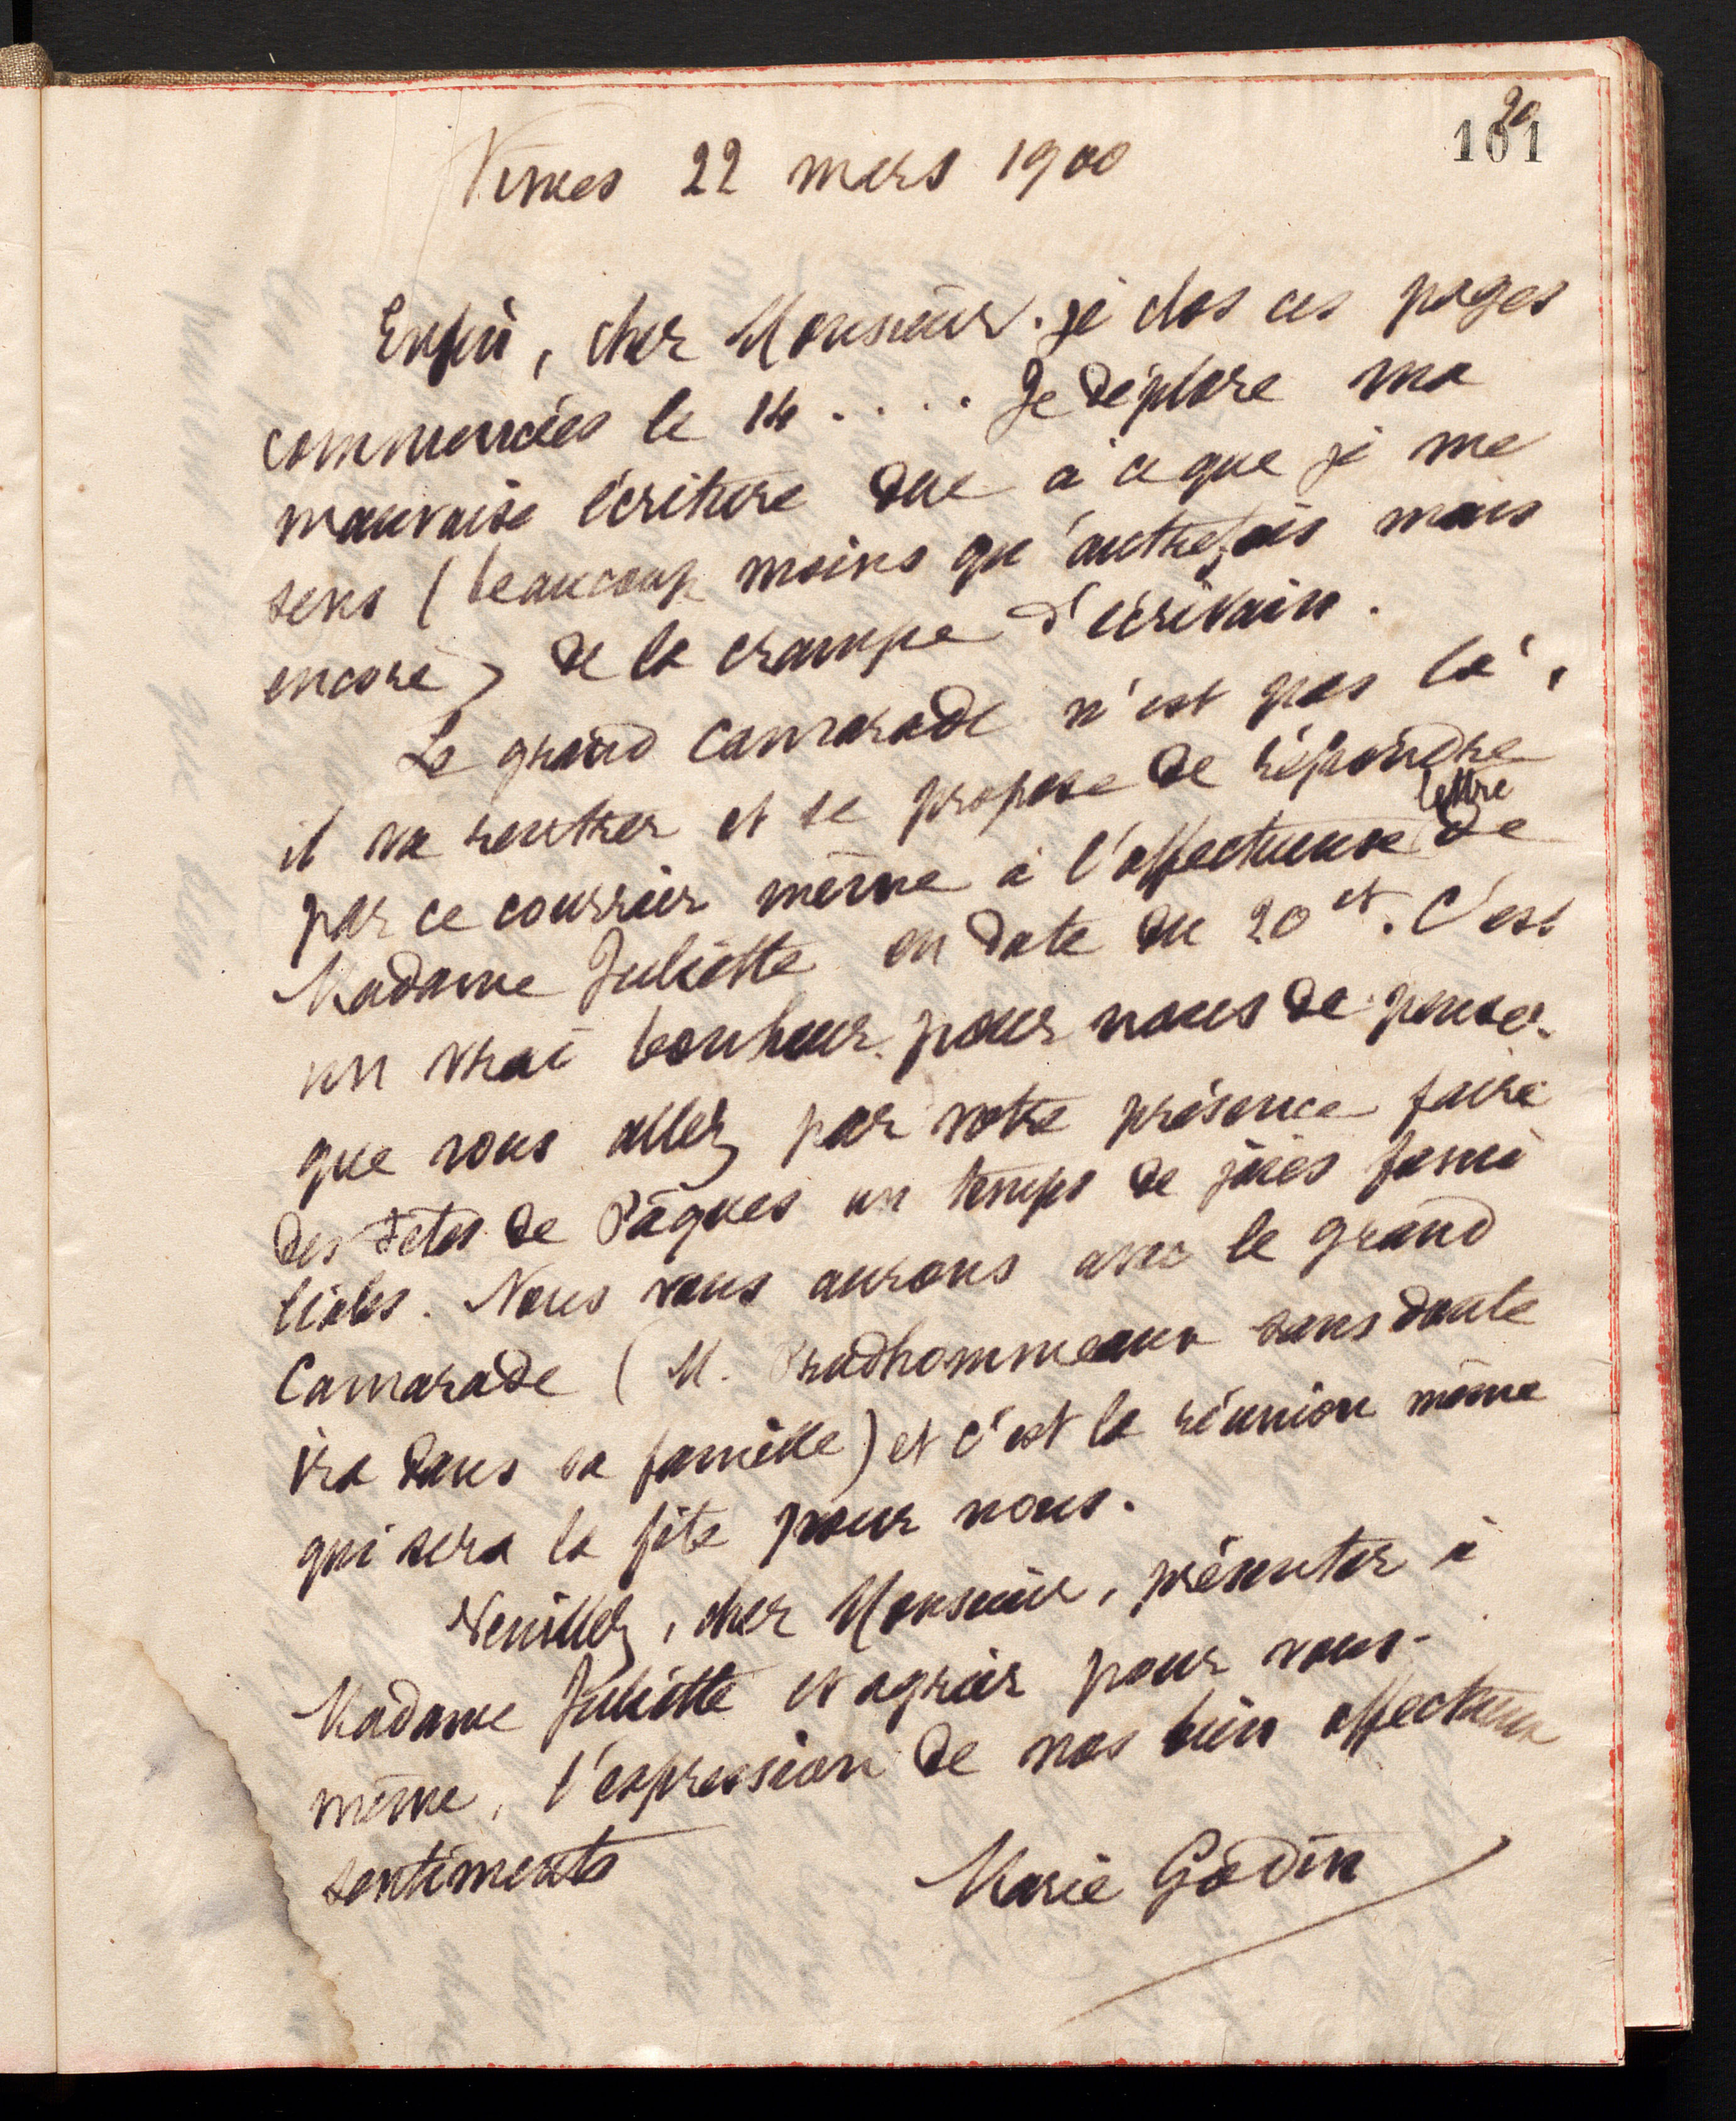 20
101
Nimes 22 mars 1900
Enfin, cher Monsieur. je clos ces pages
commencées le 14 . . . . Je déplore ma
mauvaise écriture due à ce que je me
sens (beaucoup moins qu'autrefois mais
encore) de la crampe d'écrivain.
Le grand camarade n'est pas là,
il va rentrer et se propose de répondre
par ce courrier même à l'affectueuse lettre de
Madame Juliette en date du 20 ct. C'est
un vrai bonheur pour nous de penser
que vous allez par votre présence faire
des fêtes de Pâques un temps de joies fami
liales. Nous vous aurons avec le grand
Camarade (M. Prudhommeaux sans doute
ira dans sa famille) et c'est la réunion même
qui sera la fête pour nous.
Veuillez, cher Monsieur, présenter à
Madame Juliette et agréer pour vous-
même, l'expression de nos bien affectueux
sentiments
Marie Godin